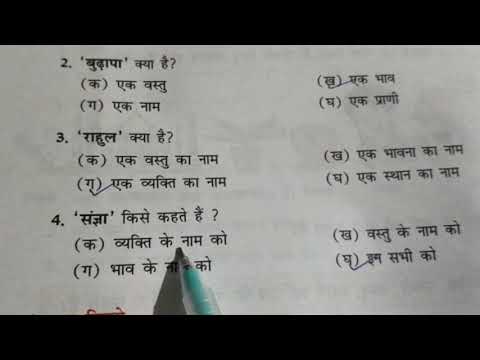 2. 'बुढ़ापा' क्या है?
(क) एक वस्तु (ख) एक भाव
(ग) एक नाम (घ) एक प्राणी
3. 'राहुल' क्या है?
(क) एक वस्तु का नाम (ख) एक भावना का नाम
(ग) एक व्यक्ति का नाम (घ) एक स्थान का नाम
4. 'संज्ञा' किसे कहते हैं ?
(क) व्यक्ति के नाम को (ख) वस्तु के नाम को
(ग) भाव के को (घ) इन सभी को